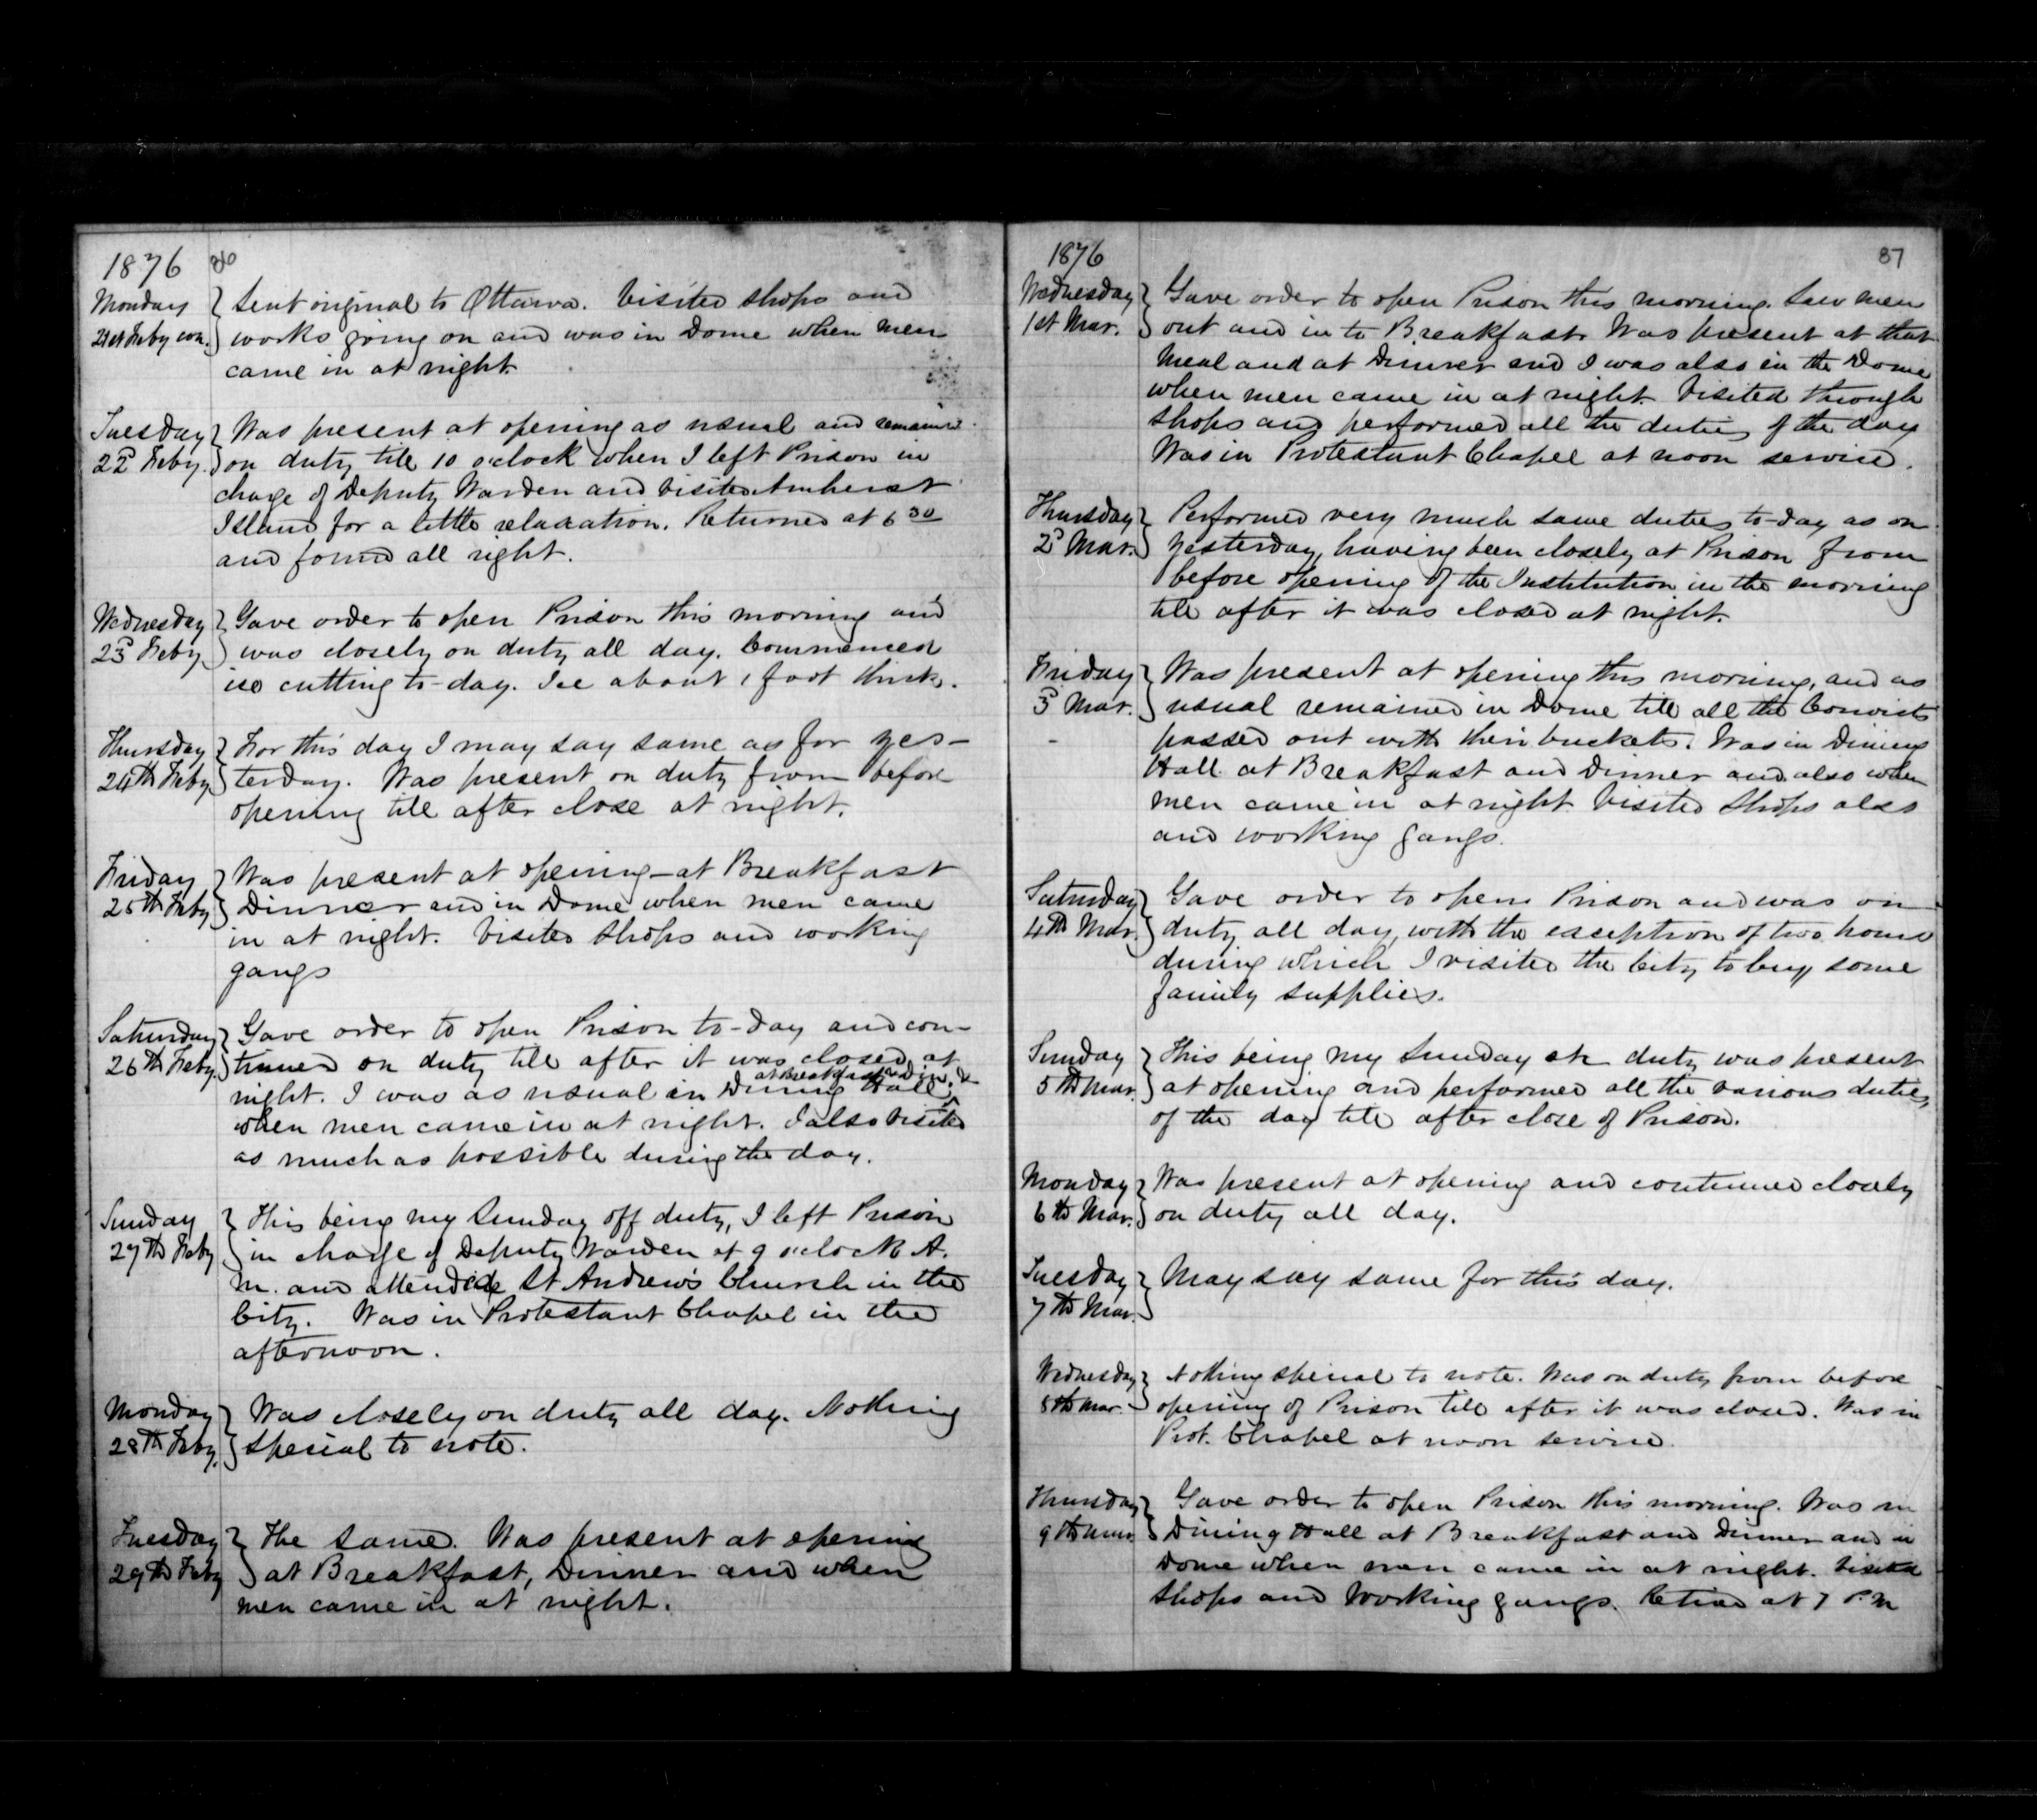 1876 86
Monday } Sent original to Ottawa. Visited Shops and
21st Feby con. } works going on and was in Dome when men
came in at night.
Tuesday } Was present at opening as usual and remained
22d Feby. } on duty till 10 o'clock when I left Prison in
charge of Deputy Warden and visited Amherst
Island for a little relaxation. Returned at 6 30
and found all right.
Wednesday } Gave order to open Prison this morning and
23d Feby } was closely on duty all day. Commenced
ice cutting to-day. Ice about 1 foot thick.
Thursday } For this day I may say same as for yes-
24th Feby } terday. Was present on duty from before
opening till after close at night.
Friday } Was present at opening - at Breakfast
25th Feby } Dinner and in Dome when men came
in at night. Visited Shops and working
gangs
Saturday } Gave order to open Prison to-day and con-
26th Feby } tinued on duty till after it was closed at
at Breakfast & Din. &
night. I was as usual in Dining Hall ^
when men came in at night. I also visited
as much as possible during the day.
Sunday } This being my Sunday off duty, I left Prison
27th Feby } in charge of Deputy Warden at 9 o'clock A.
M. and attended St Andrew's Church in the
City. Was in Protestant Chapel in the
afternoon.
Monday } Was closely on duty all day. Nothing
28th Feby. } special to note.
Tuesday } The same. Was present at opening
29th Feby } at Breakfast, Dinner and when
men came in at night.
1876 87
Wednesday } Gave order to open Prison this morning. Saw men
1st Mar. } out and in to Breakfast. Was present at that
meal and at Dinner and I was also in the Dome
when men came in at night. Visited through
Shops and performed all the duties of the day
Was in Protestant Chapel at noon service.
Thursday } Performed very much same duties to-day as on
2d Mar. } yesterday, having been closely at Prison from
before opening of the Institution in the morning
till after it was closed at night.
Friday } Was present at opening this morning, and as
3d Mar. } usual remained in Dome till all the Convicts
passed out with their buckets. Was in Dining
Hall at Breakfast and Dinner and also when
men came in at night. Visited Shops also
and working gangs.
Saturday } Gave order to open Prison and was on
4th Mar. } duty all day, with the exception of two hours
during which I visited the City to buy some
family supplies.
Sunday } This being my Sunday on duty was present
5th Mar. } at opening and performed all the various duties
of the day till after close of Prison.
Monday } Was present at opening and continued closely
6th Mar. } on duty all day.
Tuesday } May say same for this day.
7th Mar. }
Wednesday } Nothing special to note. Was on duty from before
8th Mar. } opening of Prison till after it was closed. Was in
Prot. Chapel at noon service.
Thursday } Gave order to open Prison this morning. Was in
9th Mar. } Dining Hall at Breakfast and Dinner and in
Dome when men came in at night. Visited
Shops and Working gangs. Retired at 7 P.M